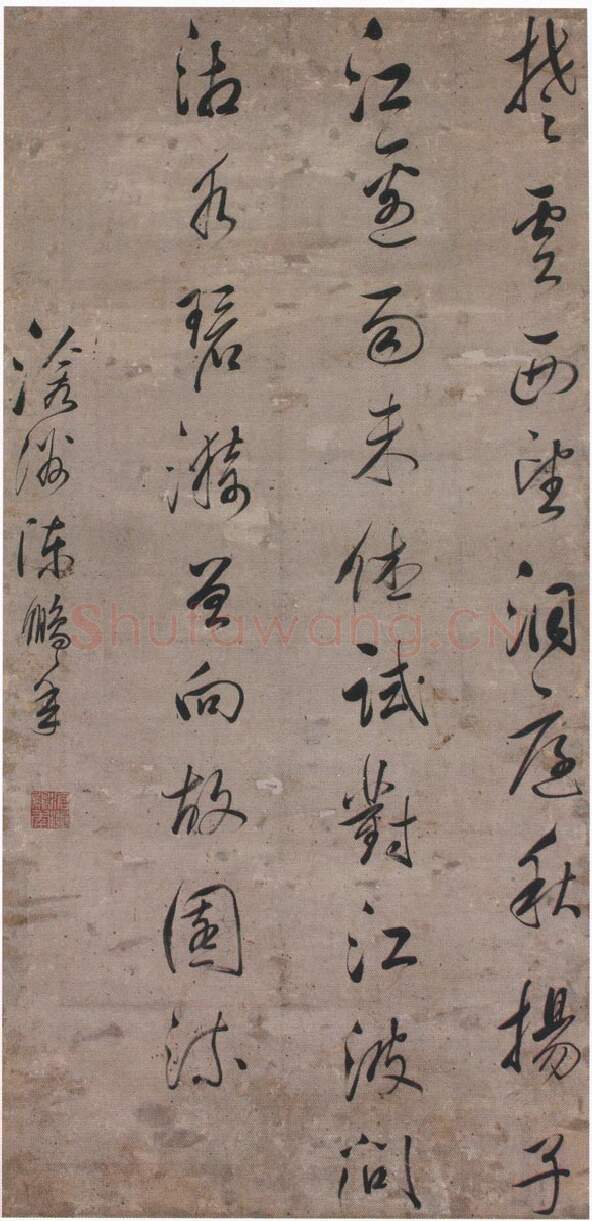 楚雲西望洞庭秋揚子
江邊雨未休試對江波問
湘水碧漪曾向故園流
滄洲陳鵬年
Shufawang.CN